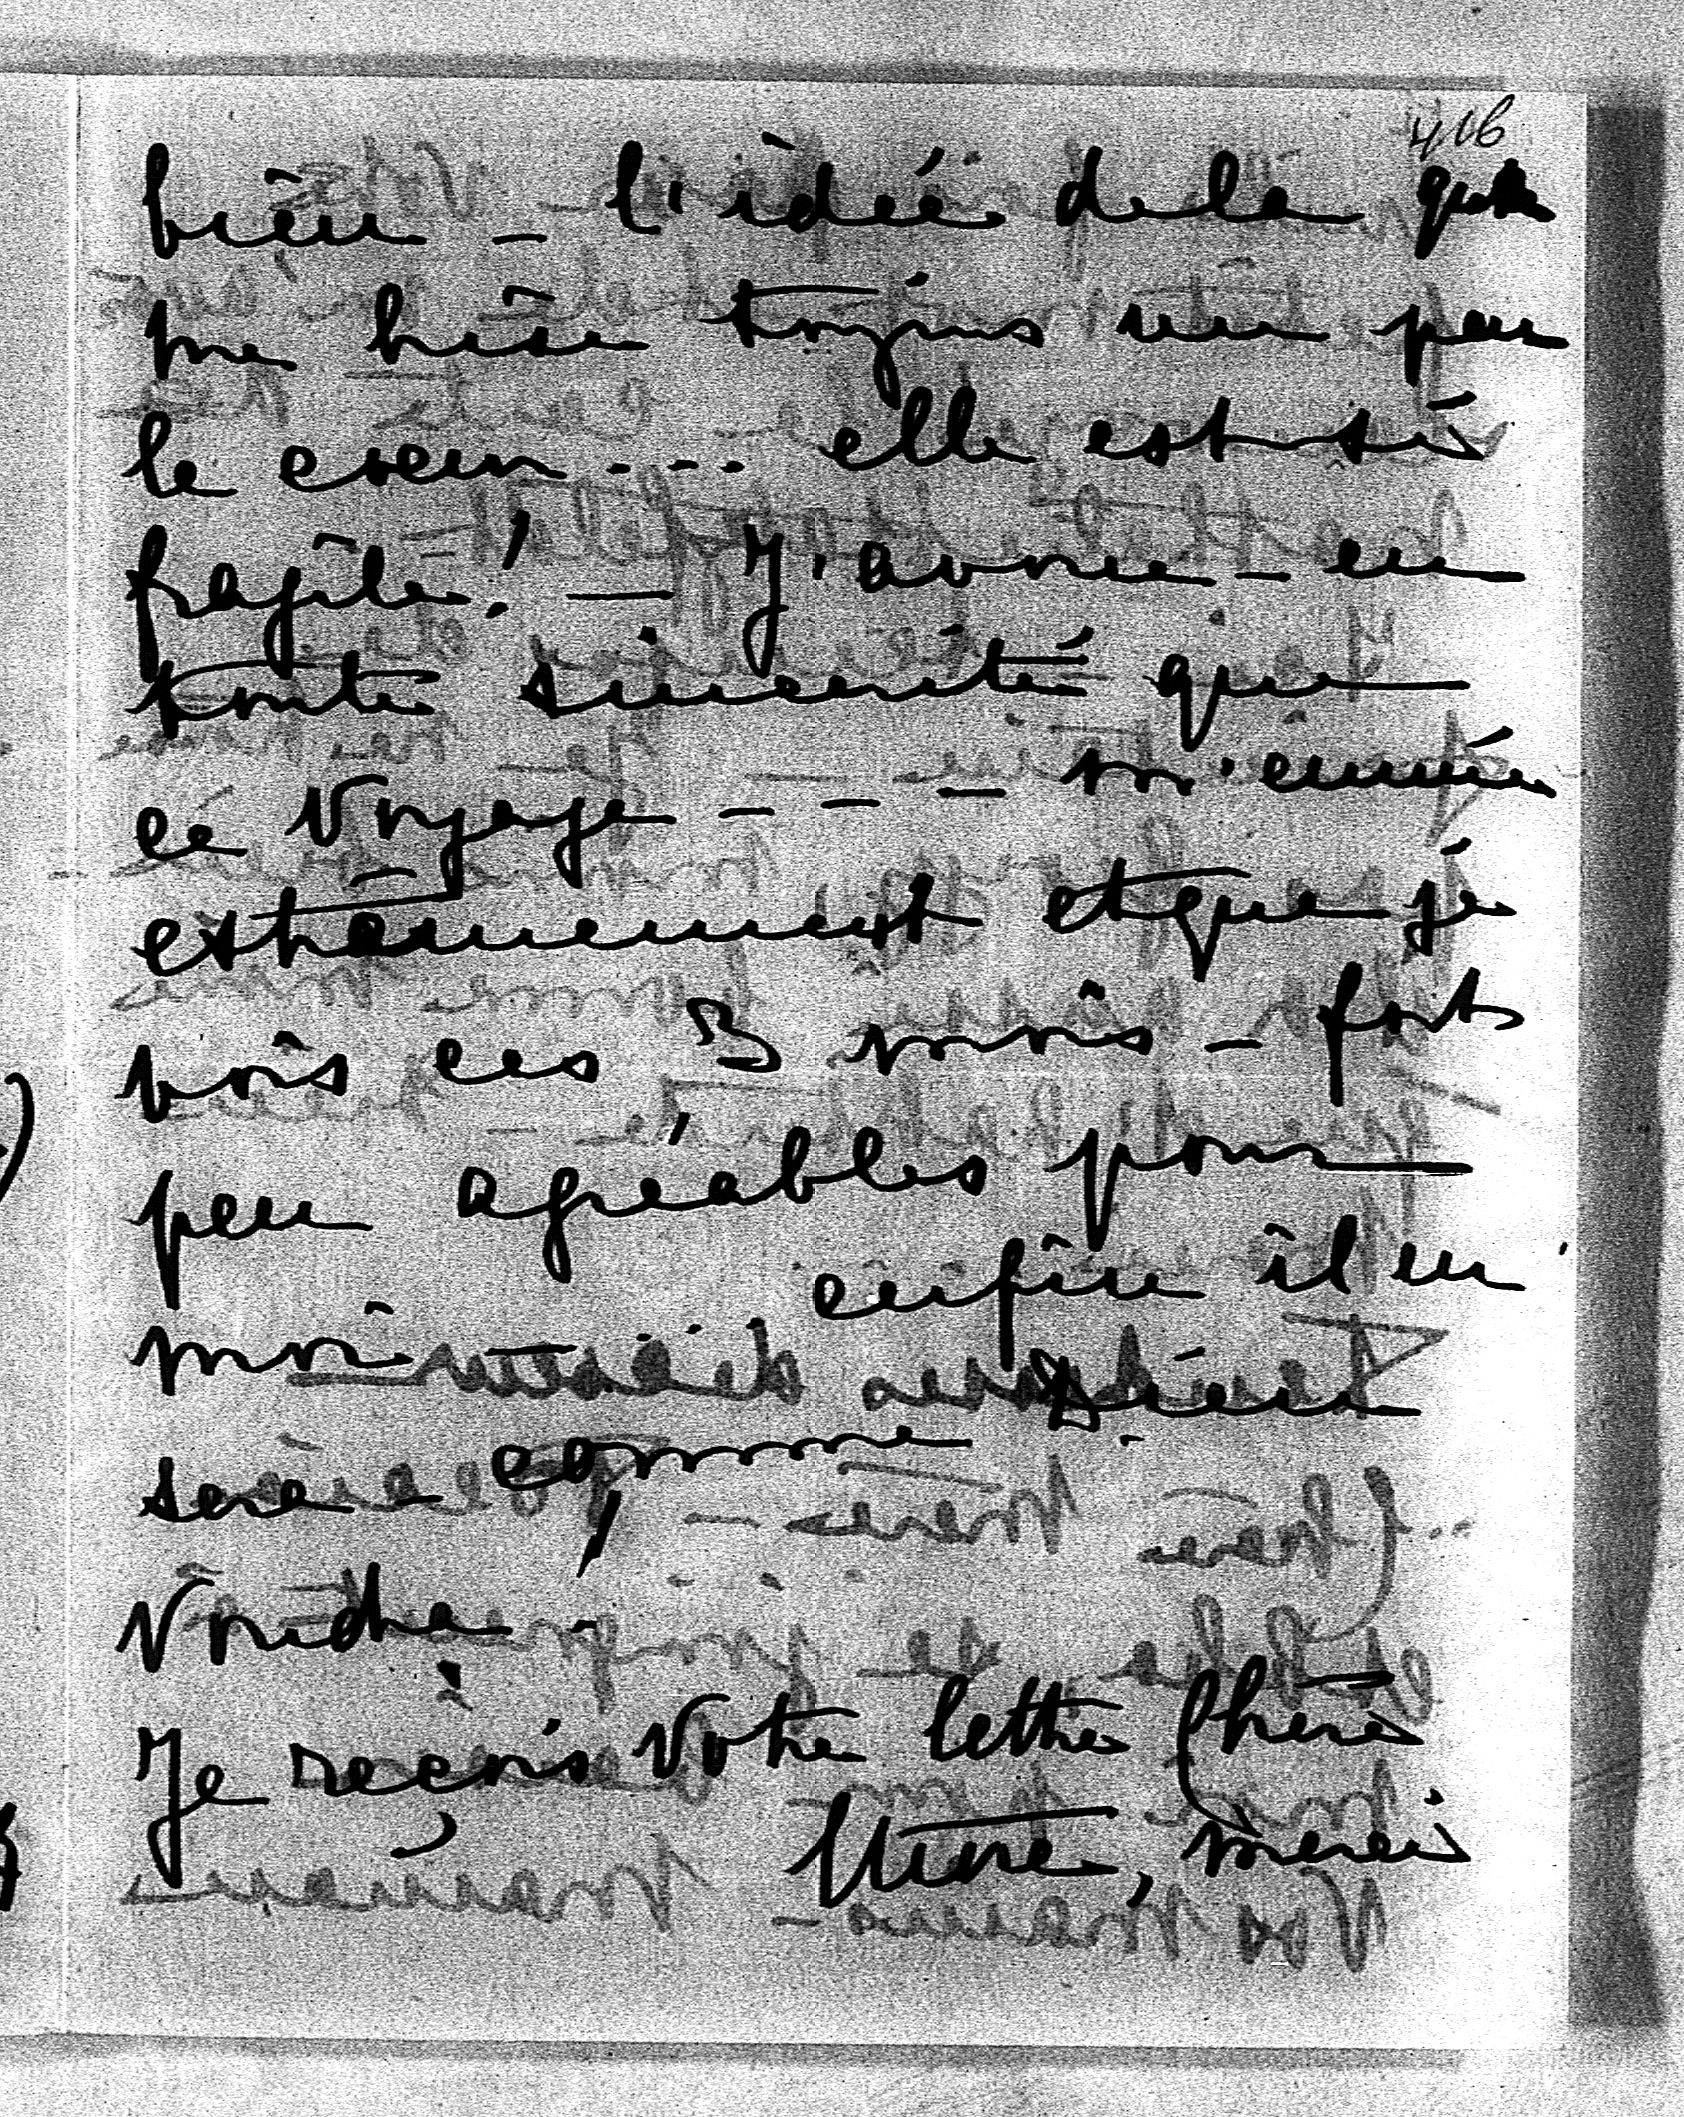 416
bien – l'idée de la
me brise toujours un peu
le cœur.... elle est si
fragile! — J'avoue – en
toute sincérité que
ce voyage – – – m'ennuie
extrêmement et que je
vois ces 3 mois – forts
peu agréables pour
moi – enfin il en
sera – comme Dieu
voudra –
Je reçois votre lettre Chère
, merci